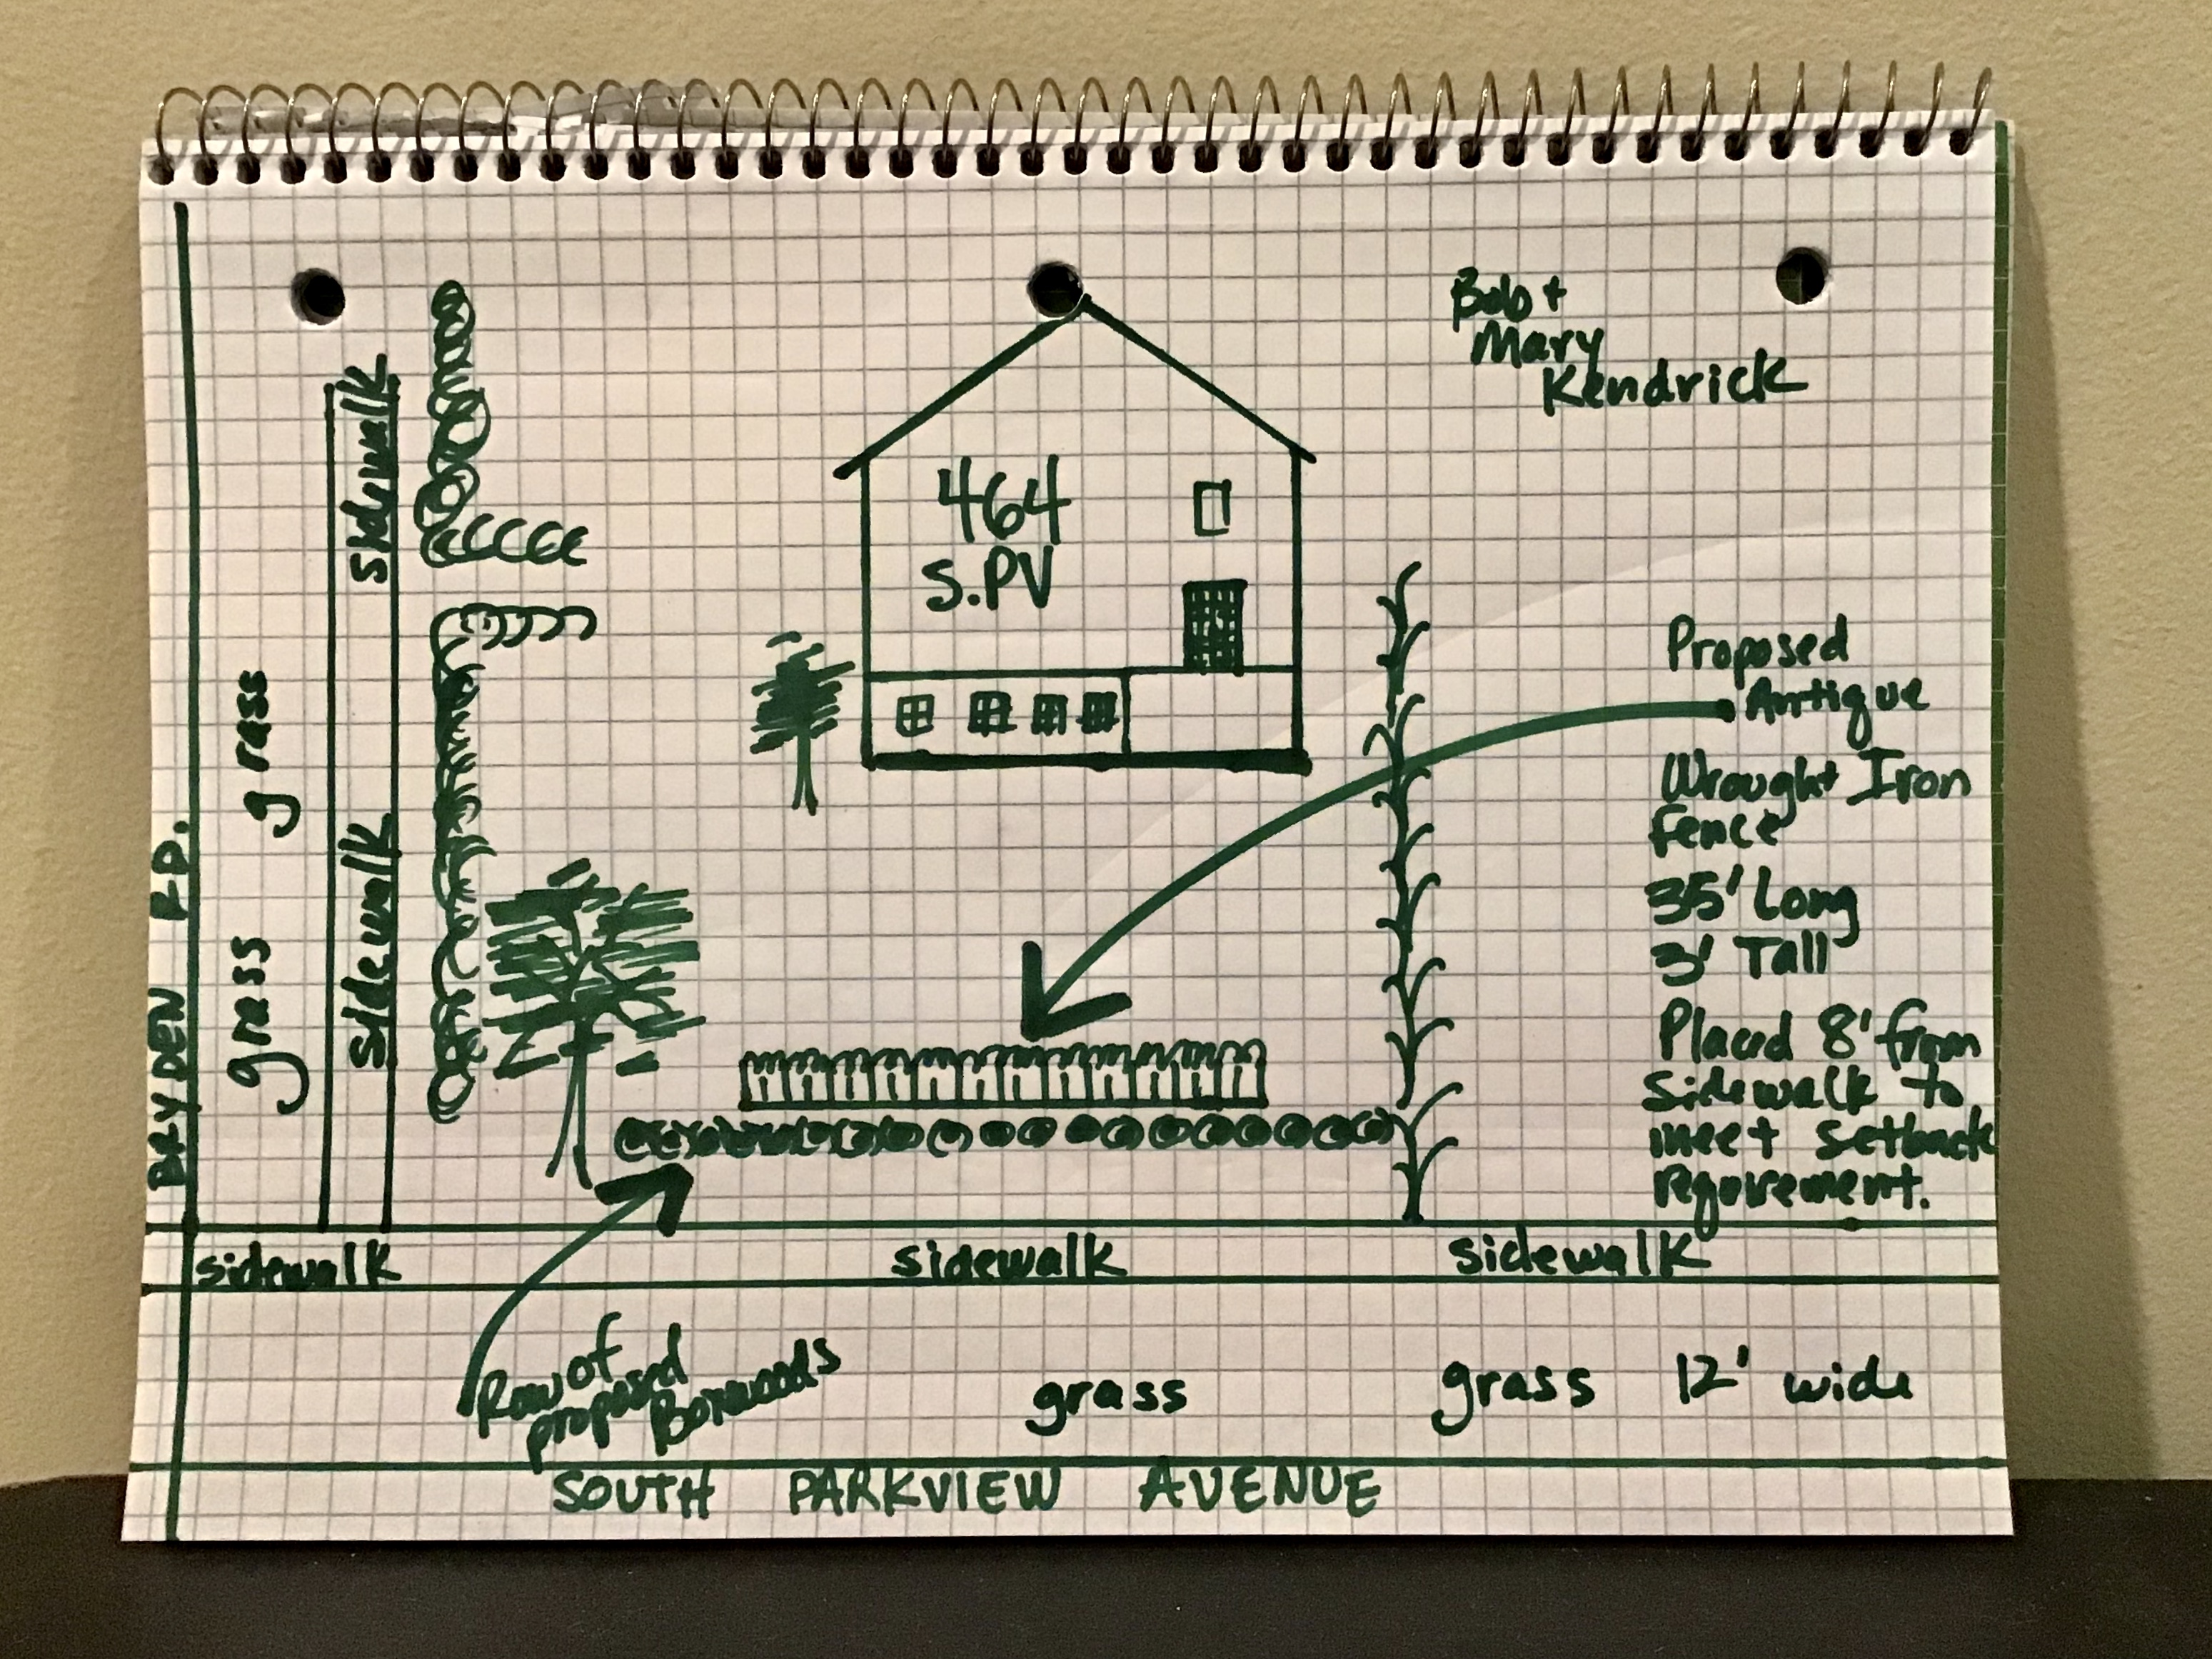 Bob +
Mary
Kendrick
464
S.PV
sidewalk
sidewalk
grass
grass
DRYDEN RD.
Proposed
Antique
Wrought Iron
Fence
35' Long
3' Tall
Placed 8' from
Sidewalk to
meet setback
requirement.
sidewalk
sidewalk
sidewalk
Row of
proposed
Boxwoods
grass
grass 12' wide
SOUTH PARKVIEW AVENUE